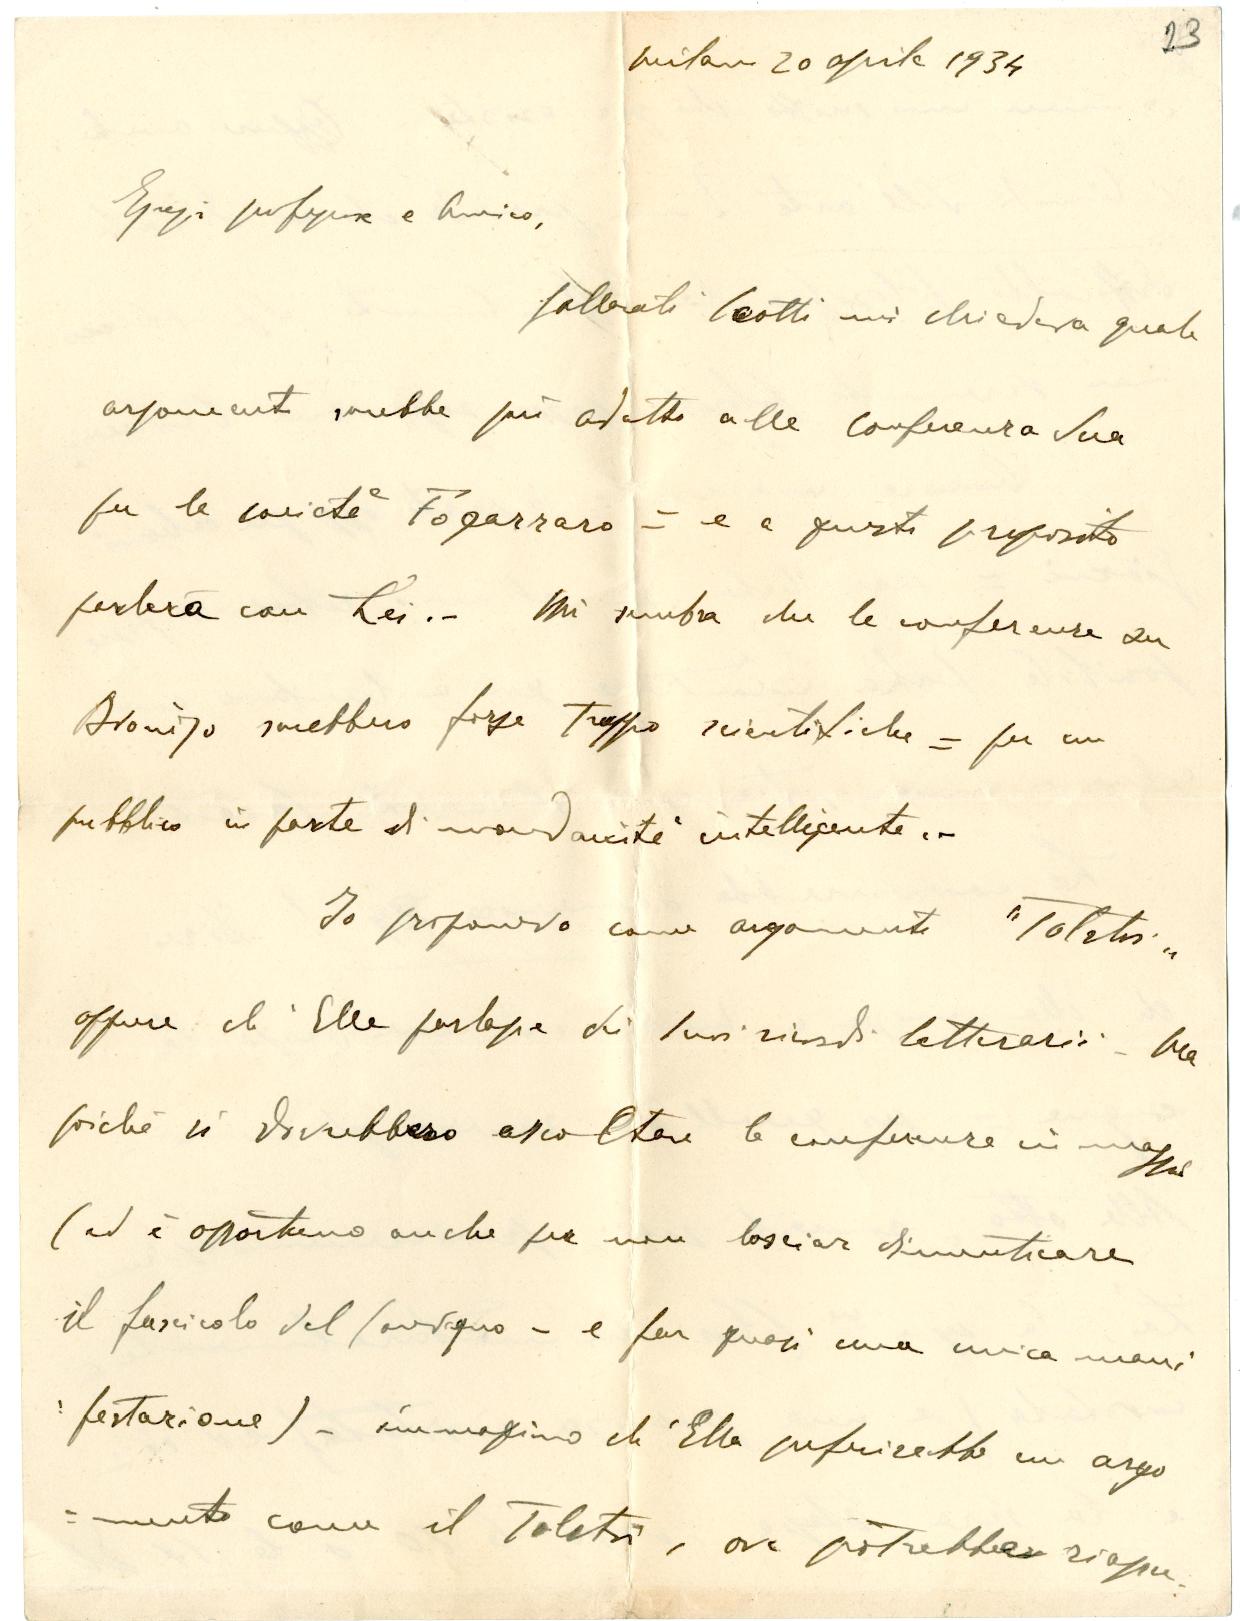 23
Milano 20 aprile 1934
Egregio professore e Amico,
Gallarati Scotti mi chiedeva quale
argomento sarebbe più adatto alla conferenza Sua
per la società Fogazzaro = e a questo proposito
parlerà con Lei .– Mi sembra che le conferenze su
sarebbero forse troppo scientifiche = per un
pubblico in parte di mondanità intelligente .–
Io proponevo come argomento "Tolstoi„
oppure ch'Ella parlasse di suoi ricordi letterarii – Ma
poichè si dovrebbero ascoltare le conferenze in maggio
(ed è opportuno anche per non lasciar dimenticare
il fascicolo del Convegno – e far quasi una unica mani
festazione) – immagino ch'Ella preferirebbe un argo
=mento come il Tolstoi, ove potrebbe